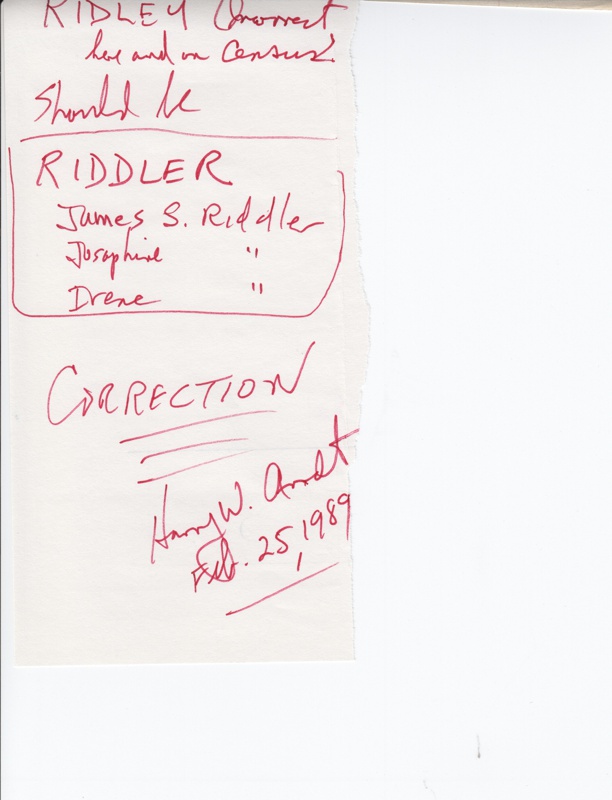 RIDLEY Incorrect
here and on Census!
Should be
RIDDLER
James S. Riddler
Josephine "
Drene "
CORRECTION
Harry W. Arndt
Feb. 25, 1989